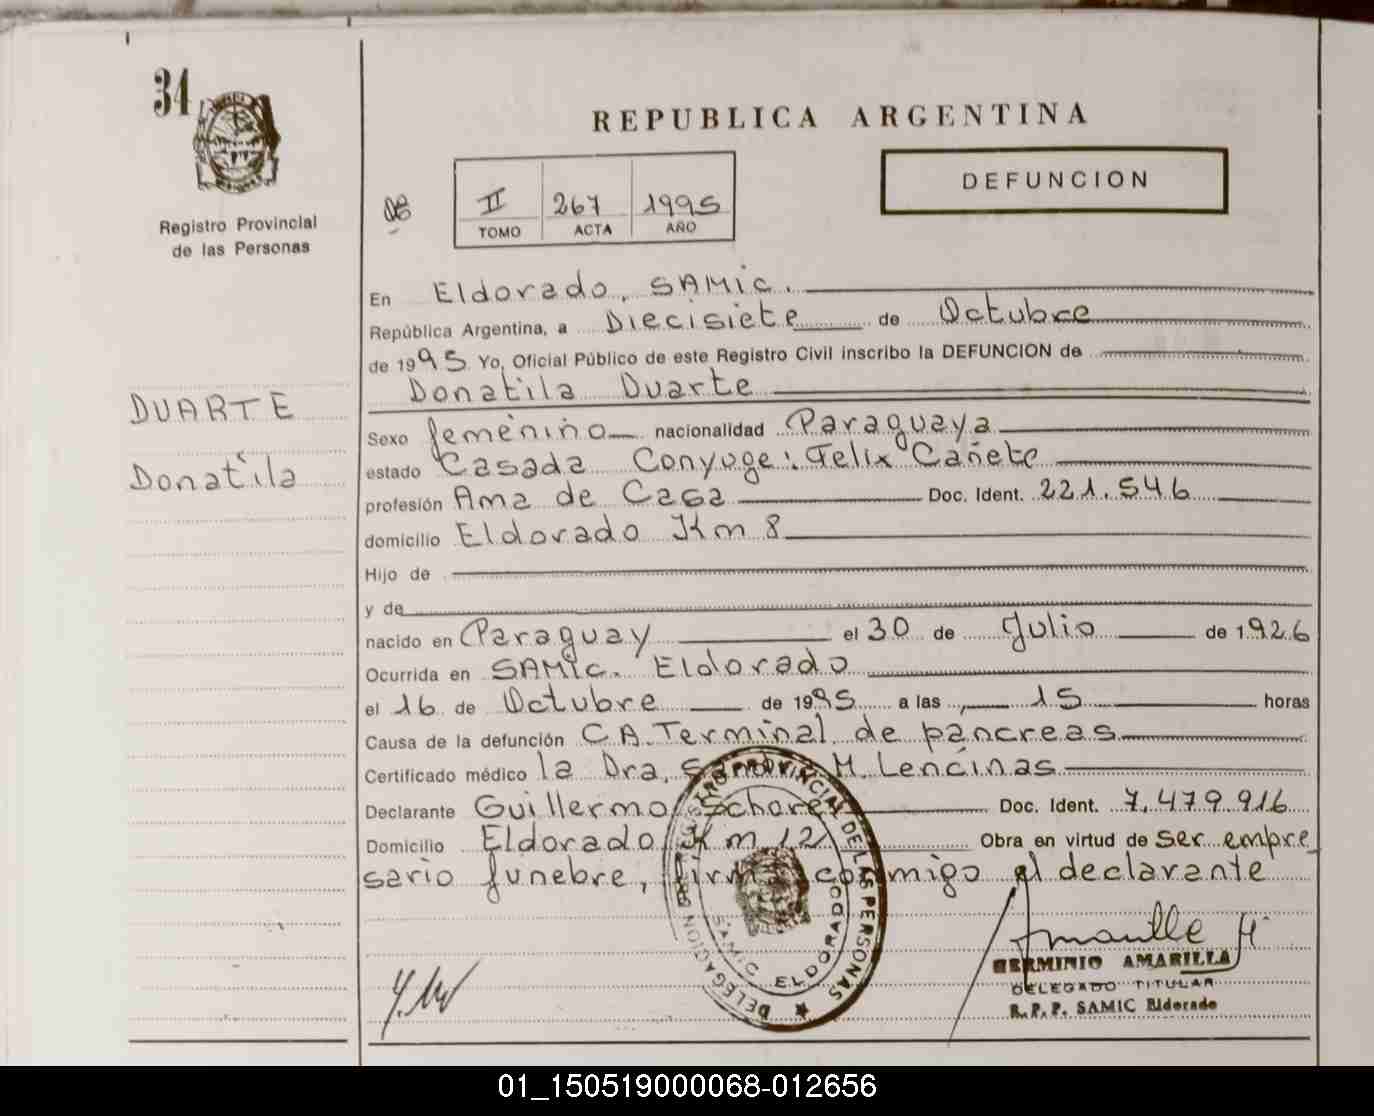 34
REPUBLICA ARGENTINA
DEFUNCION
Registro Provincial
de las Personas
II 267 1995
TOMO ACTA AÑO
En Eldorado, SAMic.
República Argentina, a Diecisiete de Octubre
de 1995 Yo, Oficial Público de este Registro Civil inscribo la DEFUNCION de
Donatila Duarte
DUARTE
Donatila
Sexo femenino nacionalidad Paraguaya
estado Casada Conyuge: Felix Cañete
profesión Ama de Casa Doc. Ident. 221.546
domicilio Eldorado Km 8
Hijo de
y de
nacido en Paraguay el 30 de Julio de 1926
Ocurrida en SAMic. Eldorado
el 16 de Octubre de 1995 a las 15 horas
Causa de la defunción CA. Terminal de páncreas
Certificado médico la Dra, Sandra M. Lencinas
Declarante Guillermo Doc. Ident. 7,479,916
Domicilio Eldorado Km 12 Obra en virtud de ser empre
sario fúnebre, firma conmigo el declarante
DELEGACION REGISTRO PROVINCIAL DE LAS PERSONAS
SAMIC ELDORADO
HERMINIO AMARILLA
DELEGADO TITULAR
R.P.P. SAMIC Eldorado
01_150519000068-012656